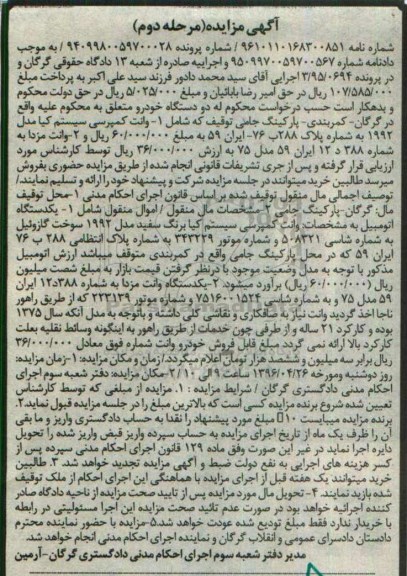 آگهی مزایده(مرحله دوم)
شماره نامه ۹۶۱۰۱۱۰۱۶۸۳۰۰۸۵۱ / شماره پرونده ۹۴۰۹۹۸۰۰۵۹۷۰۰۰۲۸ / به موجب
دادنامه شماره ۹۵۰۹۹۷۰۰۵۹۷۰۰۵۶۷ و اجراییه صادره از شعبه ۱۳ دادگاه حقوقی گرگان و
در پرونده ۳/۹۵/۰۶۹۴ اجرایی آقای سید محمد دادور فرزند سید علی اکبر به پرداخت مبلغ
۱۰۷/۵۸۵/۰۰۰ ریال در حق امیر رضا بابائیان و مبلغ ۵/۰۲۵/۰۰۰ ریال در حق دولت محکوم
و بدهکار است حسب درخواست محکوم له دو دستگاه خودرو متعلق به محکوم علیه واقع
در گرگان- کمربندی- پارکینگ جامی توقیف که شامل ۱- وانت کمپرسی سیستم کیا مدل
۱۹۹۲ به شماره پلاک ۲۸۸ب ۷۶- ایران ۵۹ به مبلغ ۶۰/۰۰۰/۰۰۰ ریال و ۲-وانت مزدا به
شماره ۳۸۸ د ۱۲ ایران ۵۹ مدل ۷۵ به ارزش ۳۶/۰۰۰/۰۰۰ ریال توسط کارشناس مورد
ارزیابی قرار گرفته و پس از جری تشریفات قانونی انجام شده از طریق مزایده حضوری بفروش
میرسد طالبین خرید میتوانند در جلسه مزایده شرکت و پیشنهاد خود را ارائه و تسلیم نمایند./
توصیف اجمالی مال منقول توقیف شده بر اساس قانون اجرای احکام مدنی ۱-محل توقیف
مال: گرگان-پارکینگ جامی ۲- مشخصات مال منقول / اموال منقول شامل ۱- یکدستگاه
اتومبیل به مشخصات: وانت کمپرسی سیستم کیا برنگ سفید مدل ۱۹۹۲ سوخت گازوئیل
به شماره شاسی ۵۰۸۳۲۱ و شماره موتور ۳۴۳۲۲۹ به شماره پلاک انتظامی ۲۸۸ ب ۷۶
ایران ۵۹ که در محل پارکینگ جامی واقع در کمربندی متوقف میباشد ارزش اتومبیل
مذکور با توجه به مدل وضعیت موجود با درنظر گرفتن قیمت بازار به مبلغ شصت میلیون
ریال (۶۰/۰۰۰/۰۰۰ ریال) برآورد میشود. ۲-یکدستگاه وانت مزدا به شماره ۳۸۸د۱۲ ایران
۵۹ مدل ۷۵ و به شماره شاسی ۷۵۱۶۰۰۱۵۲۴ و شماره موتور ۲۳۳۱۳۹ که از طریق راهور
ناجا اخذ گردید وانت نیاز به صافکاری و نقاشی کلی داشته و باتوجه به مدل آنکه سال ۱۳۷۵
بوده و کارکرد ۲۱ ساله و از طرفی چون خدمات از طریق راهور به اینگونه وسائط نقلیه بعلت
کارکرد بالا ارائه نمی گردد مبلغ قابل فروش خودرو وانت شماره فوق معادل ۳۶/۰۰۰/۰۰۰
ریال برابر سه میلیون و ششصد هزار تومان اعلام میگردد./زمان و مکان مزایده: ۱-زمان مزایده:
روز دوشنبه ومورخه ۱۳۹۶/۰۴/۲۶ ساعت ۹ الی ۱۰ / ۲-مکان مزایده: دفتر شعبه سوم اجرای
احکام مدنی دادگستری گرگان / شرایط مزایده : ۱. مزایده از مبلغی که توسط کارشناس
تعیین شده شروع برنده مزایده کسی است که بالاترین مبلغ را در جلسه مزایده قبول نماید.۲.
برنده مزایده میبایست ۱۰٪ مبلغ مورد پیشنهاد را نقدا به حساب دادگستری واریز و ما بقی
آن را ظرف یک ماه از تاریخ اجرای مزایده به حساب سپرده واریز قبض واریز شده را تحویل
دایره اجرا نماید در غیر این صورت وفق ماده ۱۲۹ قانون اجرای احکام مدنی سپرده پس از
کسر هزینه های اجرایی به نفع دولت ضبط و آگهی مزایده تجدید خواهد شد. ۳. طالبین
خرید میتوانند یک هفته قبل از اجرای مزایده با هماهنگی این اجرای احکام از ملک توقیف
شده بازید نمایند. ۴- تحویل مال مورد مزایده پس از تایید صحت مزایده از ناحیه دادگاه صادر
کننده اجرائیه خواهد بود در صورت عدم تائید صحت مزایده این اجرا مسئولیتی در رابطه
با خریدار ندارد فقط مبلغ تودیع شده عودت خواهد شد.۵-مزایده با حضور نماینده محترم
دادستان دادسرای عمومی و انقلاب گرگان و نماینده اجرای احکام مدنی انجام خواهد شد.
مدیر دفتر شعبه سوم اجرای احکام مدنی دادگستری گرگان-آرمین